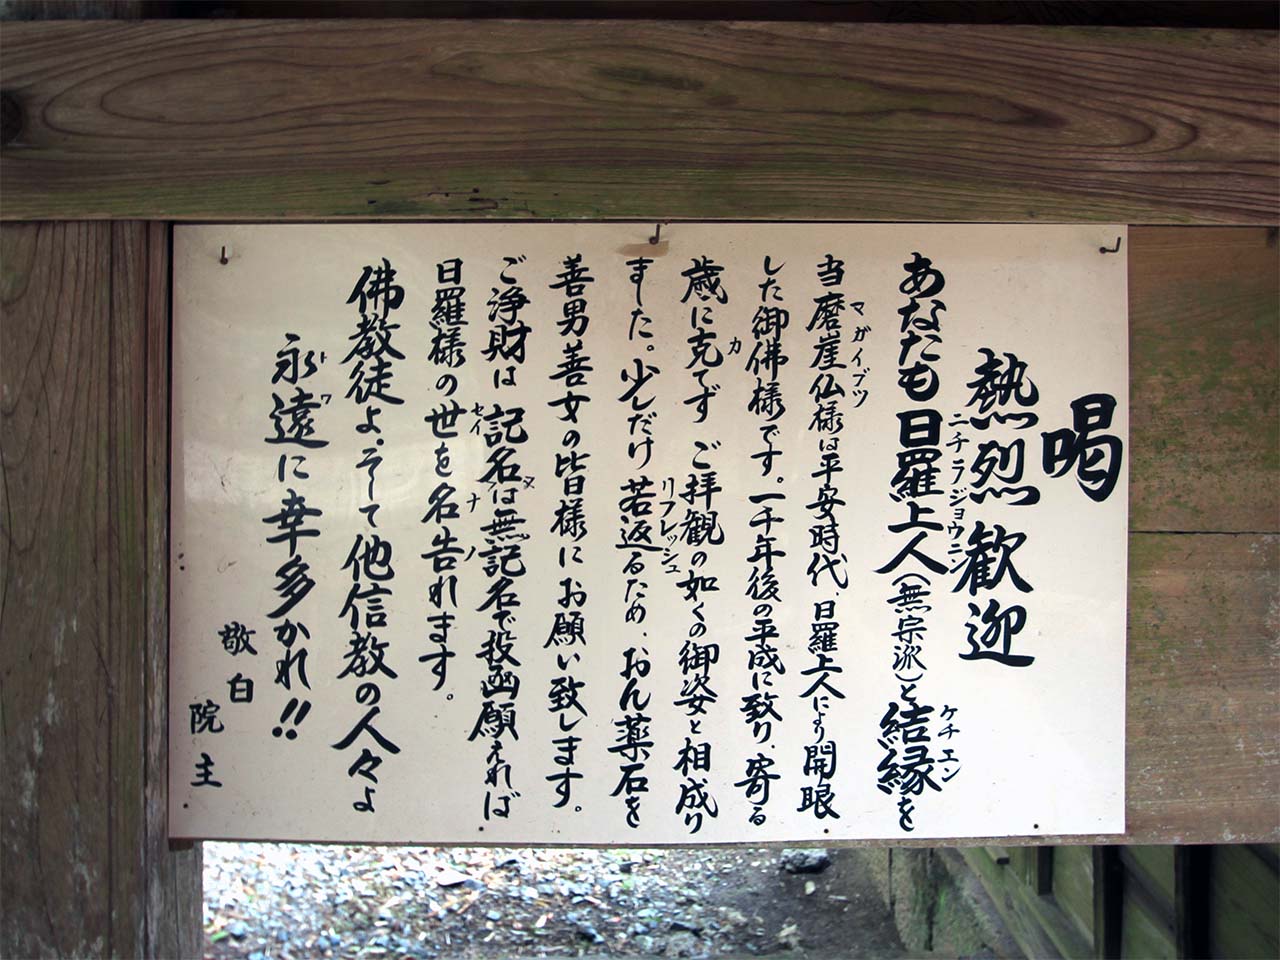 喝
熱烈歓迎
あなたも日羅上人(無宗派)と結縁を
ニチラジョウニン
ケチエン
当磨崖仏様は平安時代、日羅上人により開眼
マガイブツ
した御佛様です。一千年後の平成に致り、寄る
歳に克てず ご拝観の如くの御姿と相成り
カ
ました。少しだけ若返るため、おん薬石を
リフレッシュ
善男善女の皆様にお願い致します。
ご浄財は 記名は無記名で投函願えれば
ヌ
日羅様の世を名告れます。
セイ
ナノ
佛教徒よ、そして他信教の人々よ
永遠に幸多かれ!!
トワ
敬白
院主